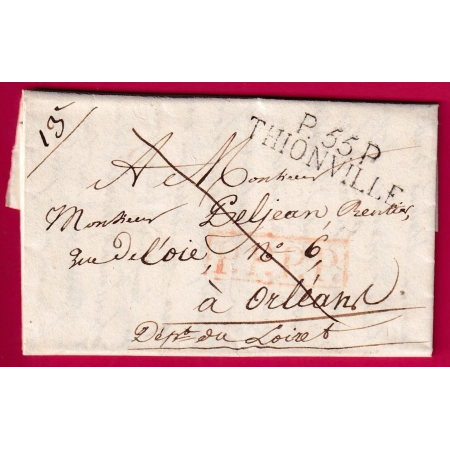 13
P. 55. P.
THIONVILLE
A Monsieur
Monsieur Peljean, Rentier,
rue de l'oie, N° 6,
P.P.P.P.
à Orléans
Dépt. du Loiret